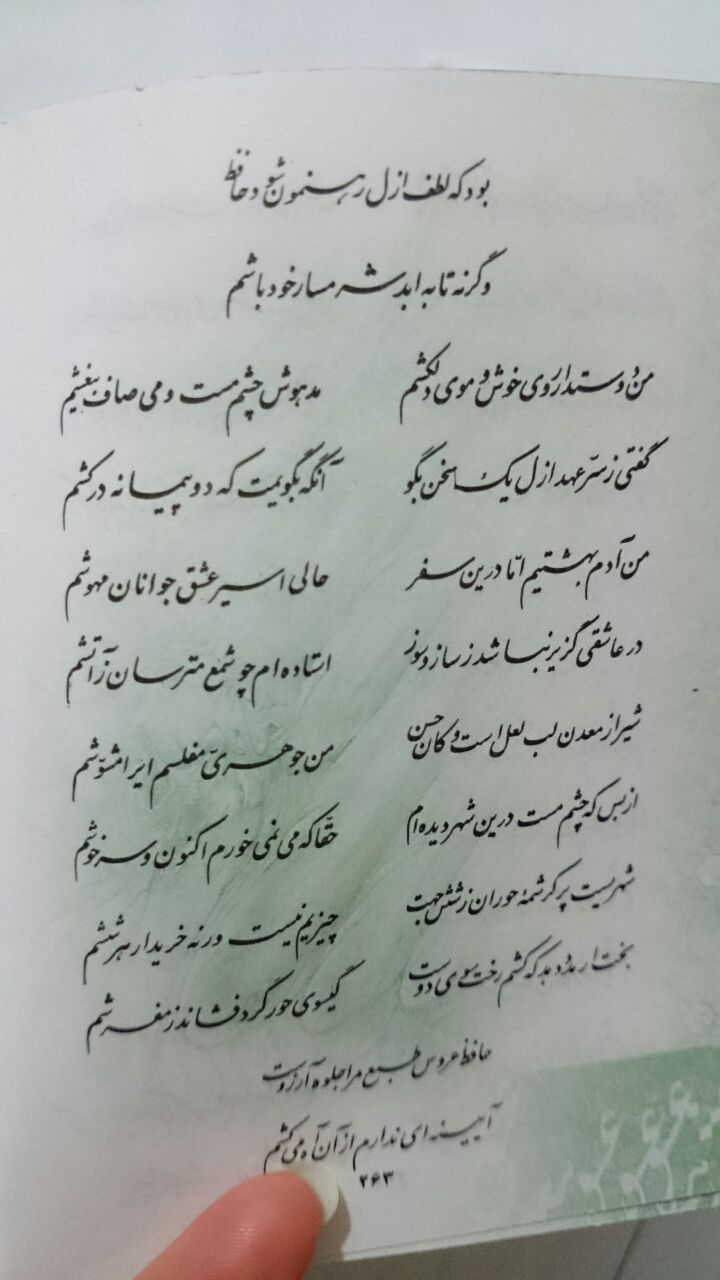 بود که لطف ازل رهنمون شود حافظ
وگرنه تا به ابد شرمسار خود باشم
من دوستدار روی خوش و موی دلکشم مدهوش چشم مست و می صاف بیغشم
گفتی ز سرّ عهد ازل یک سخن بگو آنگه بگویمت که دو پیمانه درکشم
من آدم بهشتیم امّا درین سفر حالی اسیر عشق جوانان مهوشم
در عاشقی گزیر نباشد ز ساز و سوز استاده‌ام چو شمع مترسان ز آتشم
شیراز معدن لب لعل است و کان حسن من جوهریّ مفلسم ایرا مشوّشم
از بس که چشم مست درین شهر دیده‌ام حقّا که می نمی‌خورم اکنون و سرخوشم
شهریست پر کرشمهٔ حوران ز شش جهت چیزیم نیست ورنه خریدار هر ششم
بخت ار مدد دهد که کشم رخت سوی دوست گیسوی حور گرد فشاند ز مفرشم
حافظ عروس طبع مرا جلوه آرزوست
آیینه‌ای ندارم از آن آه می‌کشم
۲۶۳